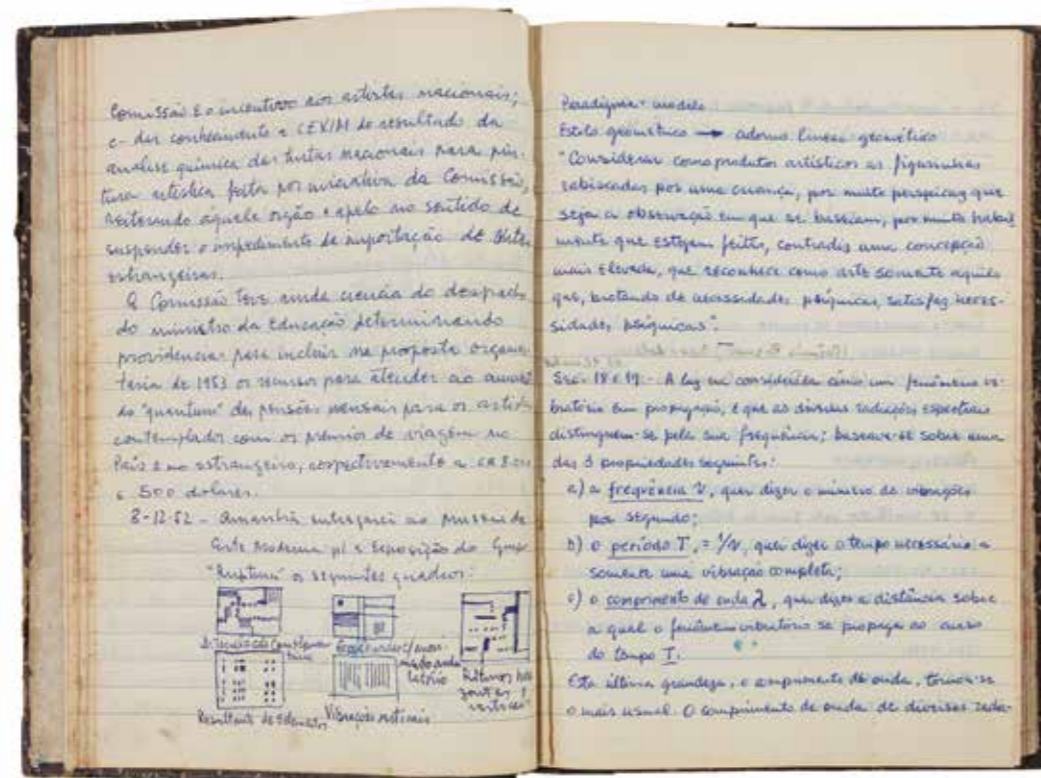 Comissão e o incentivo aos artistas nacionais;
c- dar conhecimento a CEXIM do resultado da
analise química das tintas nacionais para pin-
tura artistica feita por iniciativa da Comissão,
reiterando àquele orgão o apelo no sentido de
suspender o impedimento de importação de
estrangeiras.
A Comissão teve ainda ciencia do despacho
do ministro da Educação determinando
providencias para incluir na proposta orçamen-
taria de 1953 os recursos para atender ao
do "quantum" das pensões mensais para os artistas
contemplados com os prêmios de viagem no
País e no estrangeiro, respectivamente a CR$
e 500 dolares.
8-12-52 - Amanhã entregarei ao Museu de
Arte Moderna p/ a Exposição do Grupo
"Ruptura" os seguintes quadros:
Resultante de Elementos
Vibrações verticais
Ritmos hori
zontais e
verticais
Paradigma - modelo
Estilo geométrico → adorno linear geométrico
"Considerar como produtos artísticos as figurinhas
rabiscadas por uma criança, por muito perspicaz que
seja a observação em que se baseiam, por muito habil
mente que estejam feitas, contradiz uma concepção
mais elevada, que reconhece como arte somente aquilo
que, brotando de necessidades psíquicas, satisfaz neces-
sidades psíquicas".
Sec. 18 e 19 - A luz era considerada como um fenômeno vi-
bratório em propagação, e que as diversas radiações espectrais
distinguem-se pela sua frequência; baseava-se sobre uma
das 3 propriedades seguintes:
a) a frequência ν, quer dizer o número de vibrações
por segundo;
b) o período T, = 1/ν, quer dizer o tempo necessário a
somente uma vibração completa;
c) o comprimento de onda λ, quer dizer a distância sobre
a qual o fenômeno vibratório se propaga ao curso
do tempo T.
Esta última grandeza, o comprimento de onda, tornou-se
o mais usual. O comprimento de onda de diversas radia-